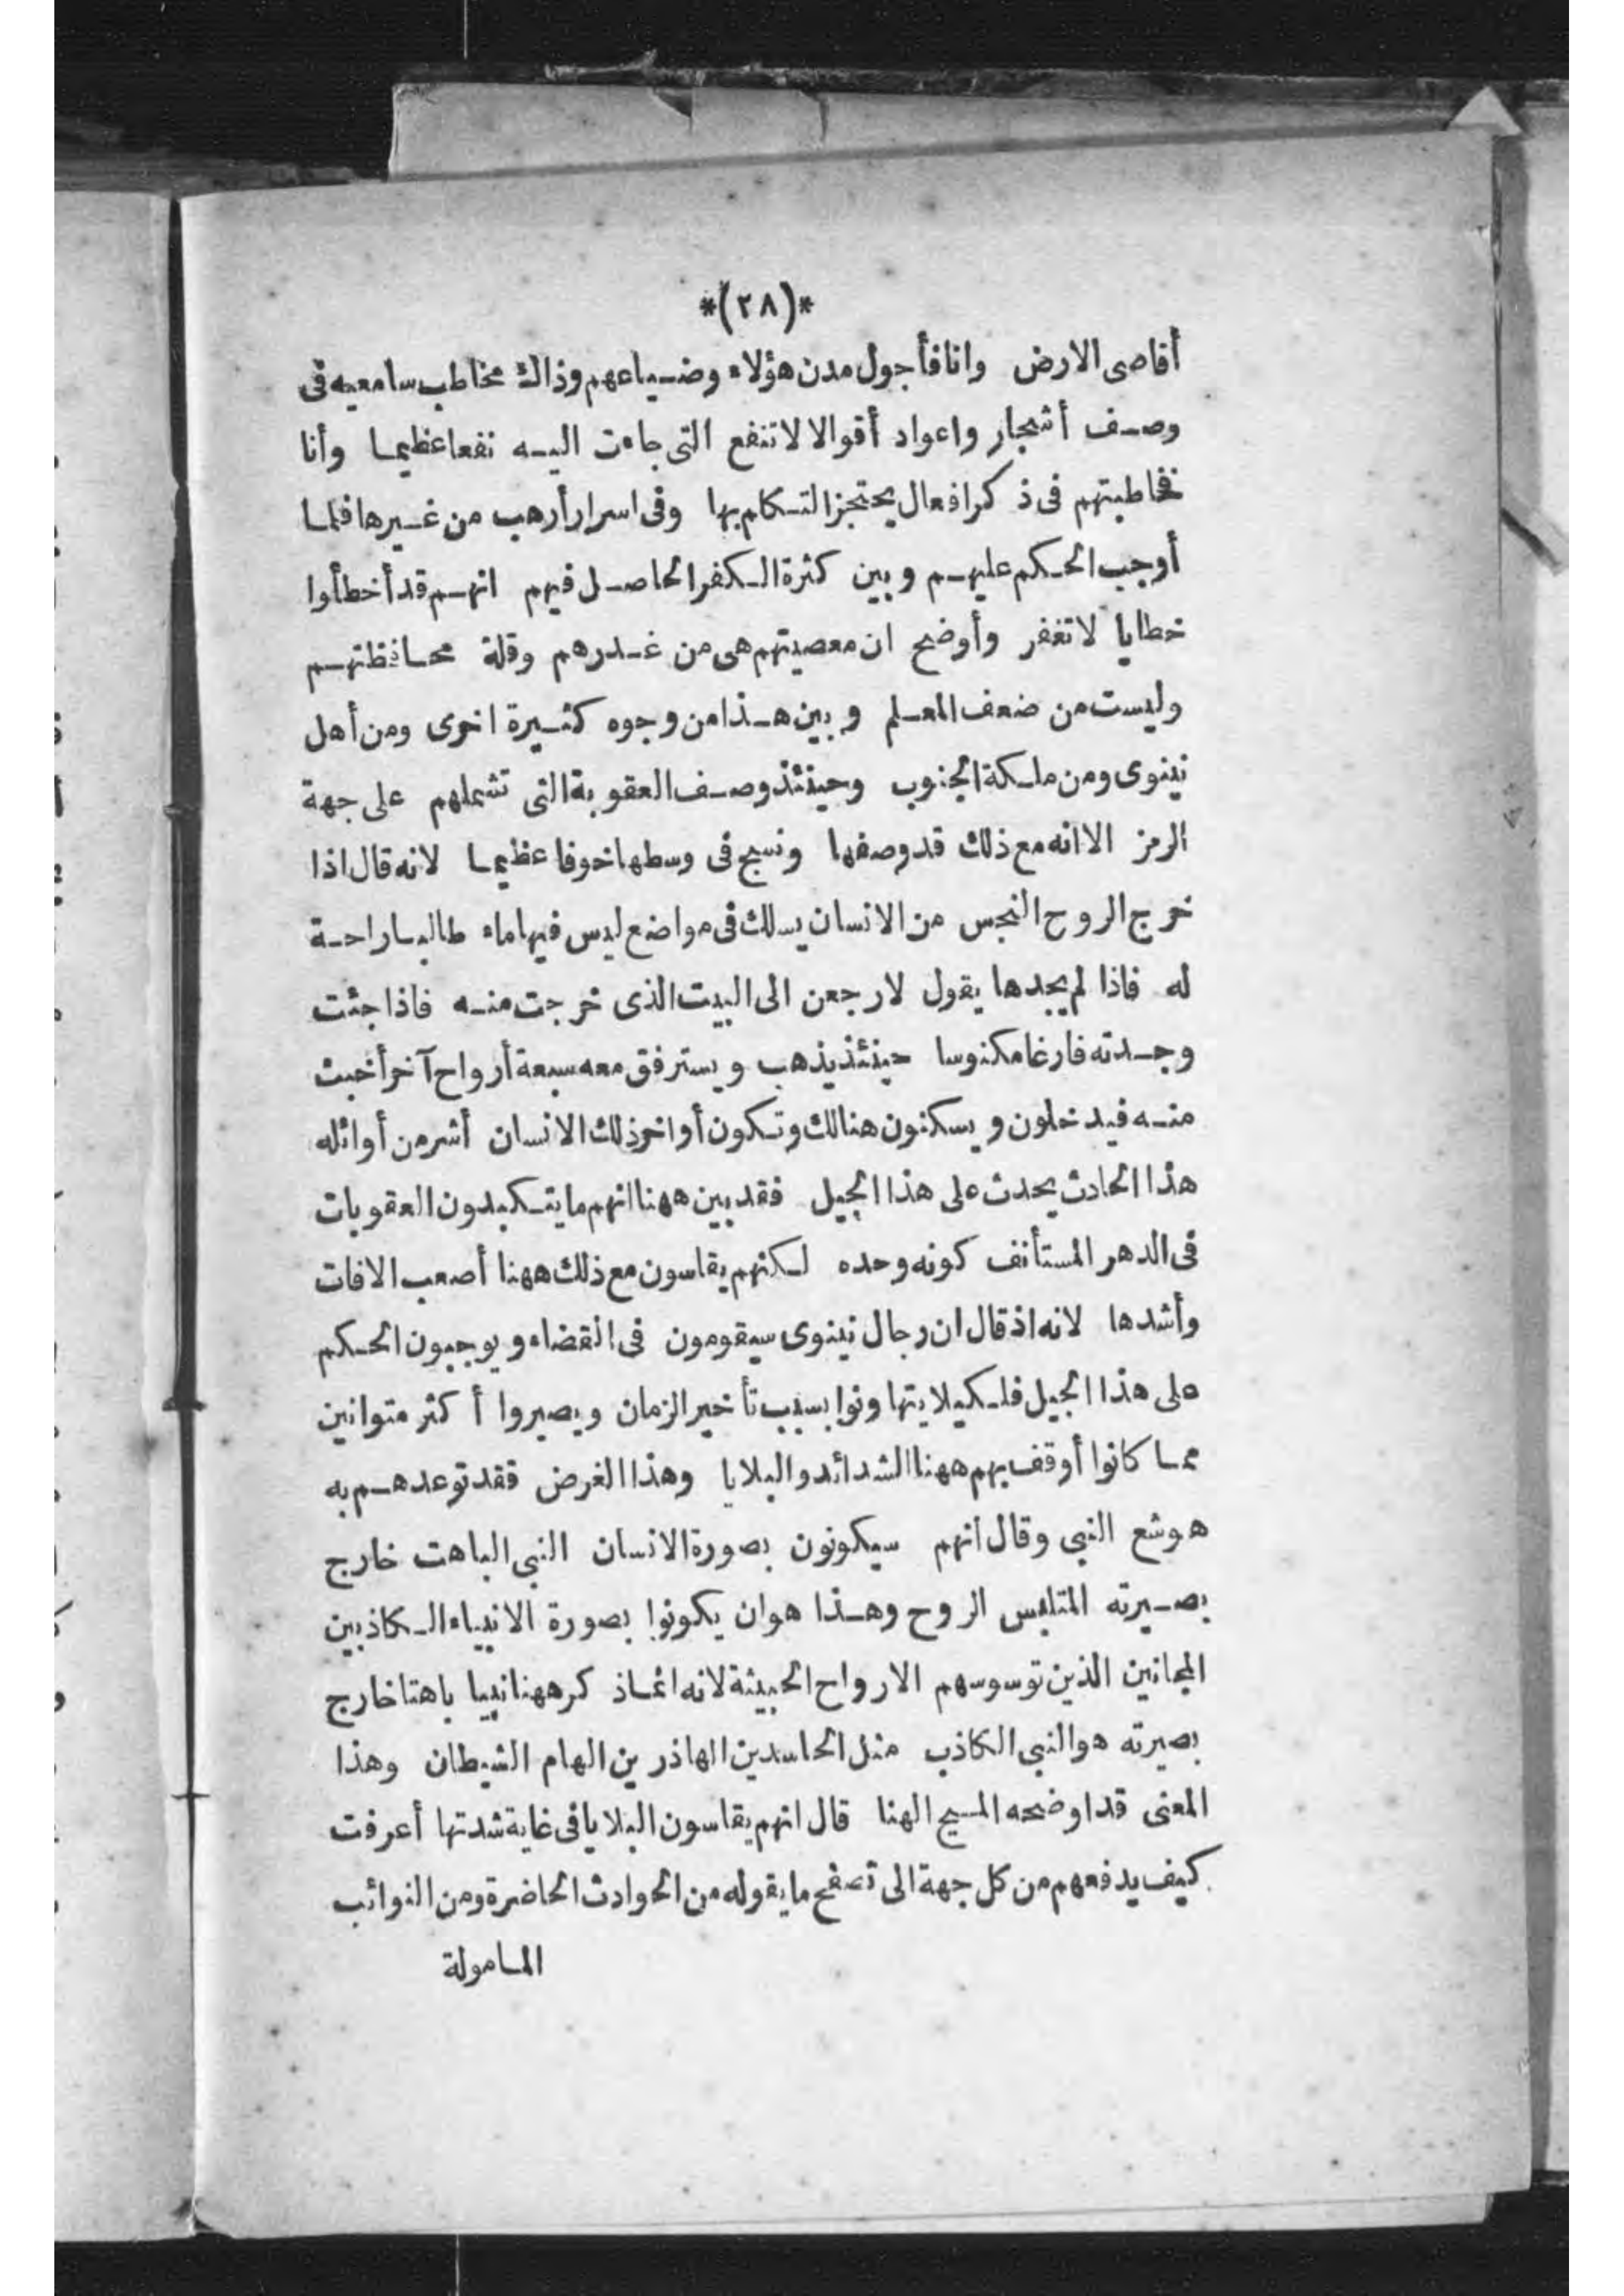 *(٢٨)*
أقاصى الارض وانا فأجول مدن هؤلاء وضياعهم وذاك مخاطب سامعيه فى
وصف أشجار واعواد أقوالا لا تنفع التى جاءت اليه نفعا عظيما وأنا
فخاطبتهم فى ذكر افعال يحتجز التكام بها وفى اسرار أرهب من غيرها فلما
أوجب الحكم عليهم وبين كثرة الكفر الحاصل فيهم انهم قد أخطأوا
خطايا لا تغفر وأوضح ان معصيتهم هى من غدرهم وقلة محافظتهم
وليست من ضعف المعلم وبين هذا من وجوه كثيرة اخرى ومن أهل
نينوى ومن ملكة الجنوب وحينئذ وصف العقوبة التى تشملهم على جهة
الرمز الا انه مع ذلك قد وصفها ونسج فى وسطها خوفا عظيما لانه قال اذا
خرج الروح النجس من الانسان يسلك فى مواضع ليس فيها ماء طالبا راحة
له فاذا لم يجدها يقول لارجعن الى البيت الذى خرجت منه فاذا جئت
وجدته فارغا مكنوسا حينئذ يذهب ويسترفق معه سبعة أرواح آخر أخبث
منه فيدخلون ويسكنون هنالك وتكون أواخر ذلك الانسان أشر من أوائله
هذا الحادث يحدث على هذا الجيل فقد بين ههنا انهم ما يتكبدون العقوبات
فى الدهر المستأنف كونه وحده لكنهم يقاسون مع ذلك ههنا أصعب الافات
وأشدها لانه اذ قال ان رجال نينوى سيقومون فى القضاء ويوجبون الحكم
على هذا الجيل فلكيلا يتهاونوا بسبب تأخير الزمان ويصيروا أكثر متوانين
مما كانوا أوقف بهم ههنا الشدائد والبلايا وهذا الغرض فقد توعدهم به
هوشع النبى وقال انهم سيكونون بصورة الانسان النبى الباهت خارج
بصيرته المتلبس الروح وهذا هو ان يكونوا بصورة الانبياء الكاذبين
المجانين الذين توسوسهم الارواح الخبيثة لانه انما ذكر ههنا نبيا باهتا خارج
بصيرته هو النبى الكاذب مثل الحاسدين الهاذرين الهام الشيطان وهذا
المعنى قد اوضحه المسيح الهنا قال انهم يقاسون البلايا فى غاية شدتها أعرفت
كيف يدفعهم من كل جهة الى تصفح ما يقوله من الحوادث الحاضرة ومن النوائب
المامولة